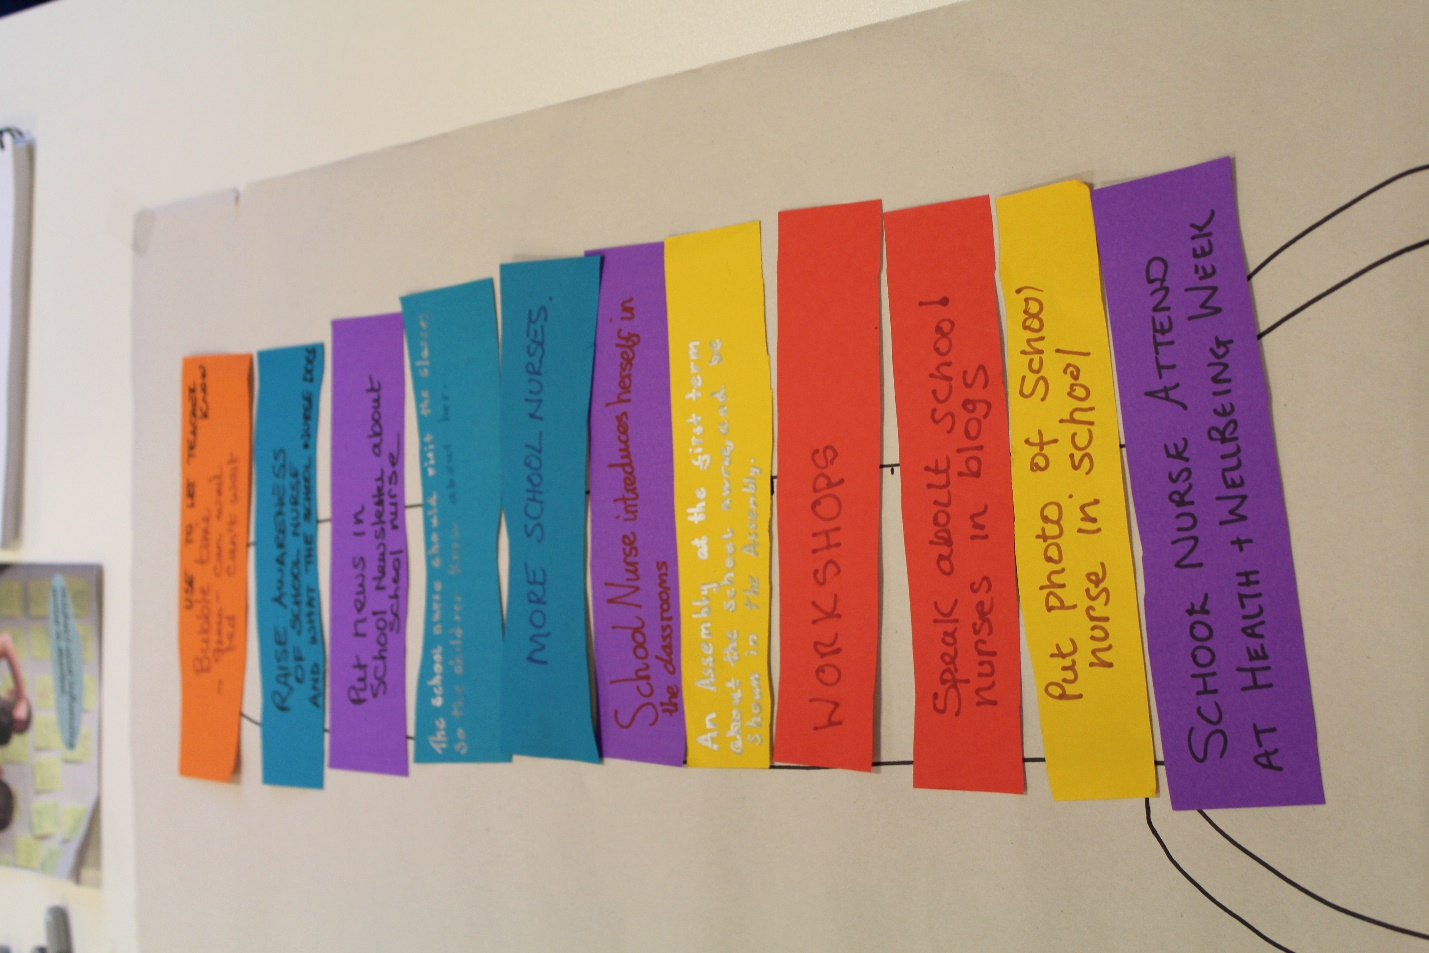 USE TO LET TEACHER
KNOW
Bubble time
- green - can wait
- red can't wait
RAISE AWARENESS
OF SCHOOL NURSE
AND WHAT THE SCHOOL NURSE DOES
Put news in
School Newsletter about
School nurse
The school nurse should visit the classes
so the children know about her.
MORE SCHOOL NURSES.
School Nurse introduces herself in
the classrooms
An Assembly at the first term
about the school nurse and be
shown in the Assembly.
WORKSHOPS
Speak about school
nurses in blogs
Put photo of School
nurse in school
SCHOOL NURSE ATTEND
AT HEALTH + WELLBEING WEEK